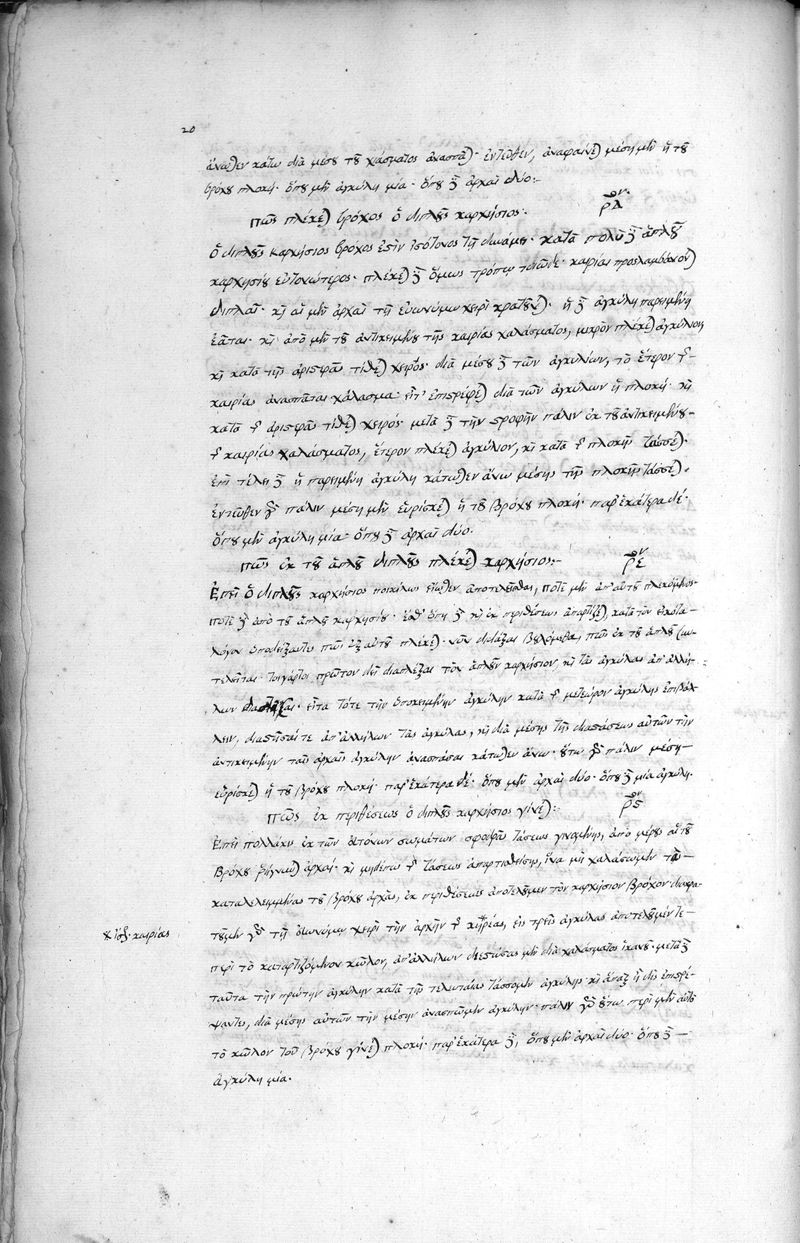 20
ἄνωθεν κάτω διὰ μέσου τοῦ χιάσματος ἀνασπᾶται. ἐντεῦθεν, ἀναφαίνεται μέση μὲν ἡ τοῦ
βρόχου πλοκή. ὅπου μὲν ἀγκύλη μία. ὅπου δὲ ἀρχαὶ δύο:-
πῶς πλέκεται βρόχος ὁ διπλοῦς καρχήσιος.
Ὁ διπλοῦς καρχήσιος βρόχος ἐστὶν ἰσότονος τῇ δυνάμει. κατὰ πολὺ δὲ ἁπλοῦ
καρχησίου εὐτονώτερος. πλέκεται δὲ ὅμως τρόπῳ τοιῷδε. καιρίας προσλαμβάνονται
διπλαῖ. καὶ αἱ μὲν ἀρχαὶ τῇ εὐωνύμῳ χειρὶ κρατοῦνται. ἡ δὲ ἀγκύλη παρειμένη
ἐᾶται. καὶ ἀπὸ μὲν τοῦ ἀντικειμένου τῆς καιρίας χαλάσματος, μικρὸν πλέκεται ἀγκύλιον
καὶ κατὰ τῆς ἀριστερᾶς τίθεται χειρός. διὰ μέσου δὲ τῶν ἀγκυλίων, τὸ ἕτερον τῆς
καιρίας ἀνασπᾶται χάλασμα. εἶτ' ἐπιστρέφεται διὰ τῶν ἀγκύλων ἡ πλοκή. καὶ
κατὰ τῆς ἀριστερᾶς τίθεται χειρός. μετὰ δὲ τὴν στροφὴν πάλιν ἐκ τοῦ ἀντικειμένου
τῆς καιρίας χαλάσματος, ἕτερον πλέκεται ἀγκύλιον, καὶ κατὰ τῆς πλοκῆς τάσσεται.
ἐπὶ τέλει δὲ ἡ παρειμένη ἀγκύλη κάτωθεν ἄνω μέσης τῆς πλοκῆς τάσσεται.
ἐντεῦθεν γὰρ πάλιν μέση μὲν εὑρίσκεται ἡ τοῦ βρόχου πλοκή. παρ' ἑκάτερα δέ.
ὅπου μὲν ἀγκύλη μία. ὅπου δὲ ἀρχαὶ δύο.
πῶς ἐκ τοῦ ἁπλοῦ διπλοῦς πλέκεται καρχήσιος:-
Ἐπεὶ ὁ διπλοῦς καρχήσιος ποικίλως εἴωθεν ἀποτελεῖσθαι, ποτὲ μὲν ἀπ' αὐτοῦ πλεκόμενος.
ποτὲ δὲ ἀπὸ τοῦ ἁπλοῦ καρχησίου. ἔσθ' ὅπη δὲ καὶ ἐκ περιθέσεως
πῶς ἐξ αὐτοῦ πλέκεται. νῦν διδάξαι βουλόμεθα, πῶς ἐκ τοῦ ἁπλοῦ
πρῶτον δεῖ διαπλέξαι τὸν ἁπλοῦν καρχήσιον, καὶ τὰς ἀγκύλας ἀπ' ἀλλή-
λων διατάξαι. εἶτα τότε τὴν ὑποκειμένην ἀγκύλην κατὰ τῆς μετεώρου ἀγκύλης ἐπιβάλ-
λειν, διαστῆσαί τε ἀπ' ἀλλήλων τὰς ἀγκύλας, καὶ διὰ μέσης τῆς διαστάσεως αὐτῶν τὴν
ἀντικειμένην ταῖς ἀρχαῖς ἀγκύλην ἀνασπάσαι κάτωθεν ἄνω. οὕτω γὰρ πάλιν μέση
εὑρίσκεται ἡ τοῦ βρόχου πλοκή. παρ' ἑκάτερα δέ. ὅπου μὲν ἀρχαὶ δύο. ὅπου δὲ μία ἀγκύλη.
πῶς ἐκ περιθέσεως ὁ διπλοῦς καρχήσιος γίνεται:
Ἐπεὶ πολλάκις ἐκ τῶν εὐτόνων σωμάτων σφοδρᾶς τάσεως γινομένης, ἀπὸ μέρους αἱ τοῦ
βρόχου ῥήγνυνται ἀρχαί. καὶ μηδέπω τῆς τάσεως ἀπαρτισθείσης, ἵνα μὴ χαλάσωμεν τὰς
καταλελειμμένας τοῦ βρόχου ἀρχὰς, ἐκ περιθέσεως ἀποτελοῦμεν τὸν καρχήσιον βρόχον
τῇ εὐωνύμῳ χειρὶ τὴν ἀρχὴν τῆς καιρίας, εἰς τρεῖς ἀγκύλας ἀποτελοῦμεν τε-
περὶ τὸ καταρτιζόμενον κῶλον, ἀπ' ἀλλήλων διεστώσας μὲν διὰ χαλάσματος ἱκανοῦ. μετὰ δὲ
ταῦτα τὴν πρώτην ἀγκύλην κατὰ τῆς τελευταίας τάσσομεν ἀγκύλης καὶ ἅπαξ ἢ δὶς ἐπιστρέ-
ψαντες, διὰ μέσης αὐτῶν τὴν μέσην ἀνασπῶμεν ἀγκύλην. πάλιν γὰρ οὕτω περὶ μὲν αὐτὸ
τὸ κῶλον τοῦ βρόχου γίνεται πλοκή. παρ' ἑκάτερα δὲ, ὅπου μὲν ἀρχαὶ δύο. ὅπου δὲ
ἀγκύλη μία.